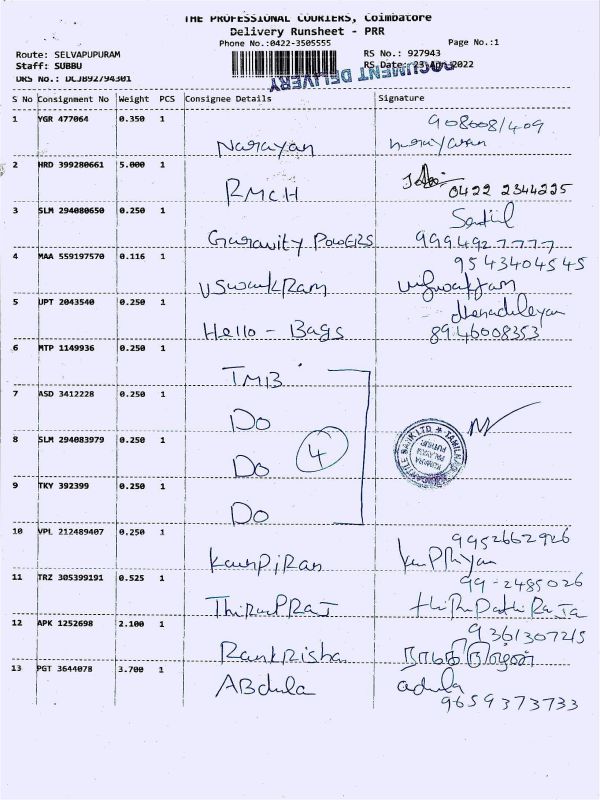 THE PROFESSIONAL COURIERS, Coimbatore
Delivery Runsheet - PRR
Phone No.:0422-3505555 Page No.:1
Route: SELVAPUPURAM RS No.: 927943
Staff: SUBBU RS Date: 23-Apr-2022
DRS No.: DCJB92794301 DOCUMENT DELIVERY
S No Consignment No Weight PCS Consignee Details Signature
1 YGR 477064 0.350 1 Narayan narayanan
2 HRD 399280661 5.000 1 RMCH 0422 2344225
3 SLM 294080650 0.250 1 Guravity Powers 9994927777
4 MAA 559197570 0.116 1 9543404545
5 UPT 2043540 0.250 1 Hello - Bags 8946008353
6 MTP 1149936 0.250 1 TMB
7 ASD 3412228 0.250 1 Do
8 SLM 294083979 0.250 1 Do 4
9 TKY 392399 0.250 1 Do
10 VPL 212489407 0.250 1 9952662926
11 TRZ 305399191 0.525 1 99-2485026
12 APK 1252698 2.100 1 9361307215
13 PGT 3644078 3.700 1 ABdula adula
9659373733